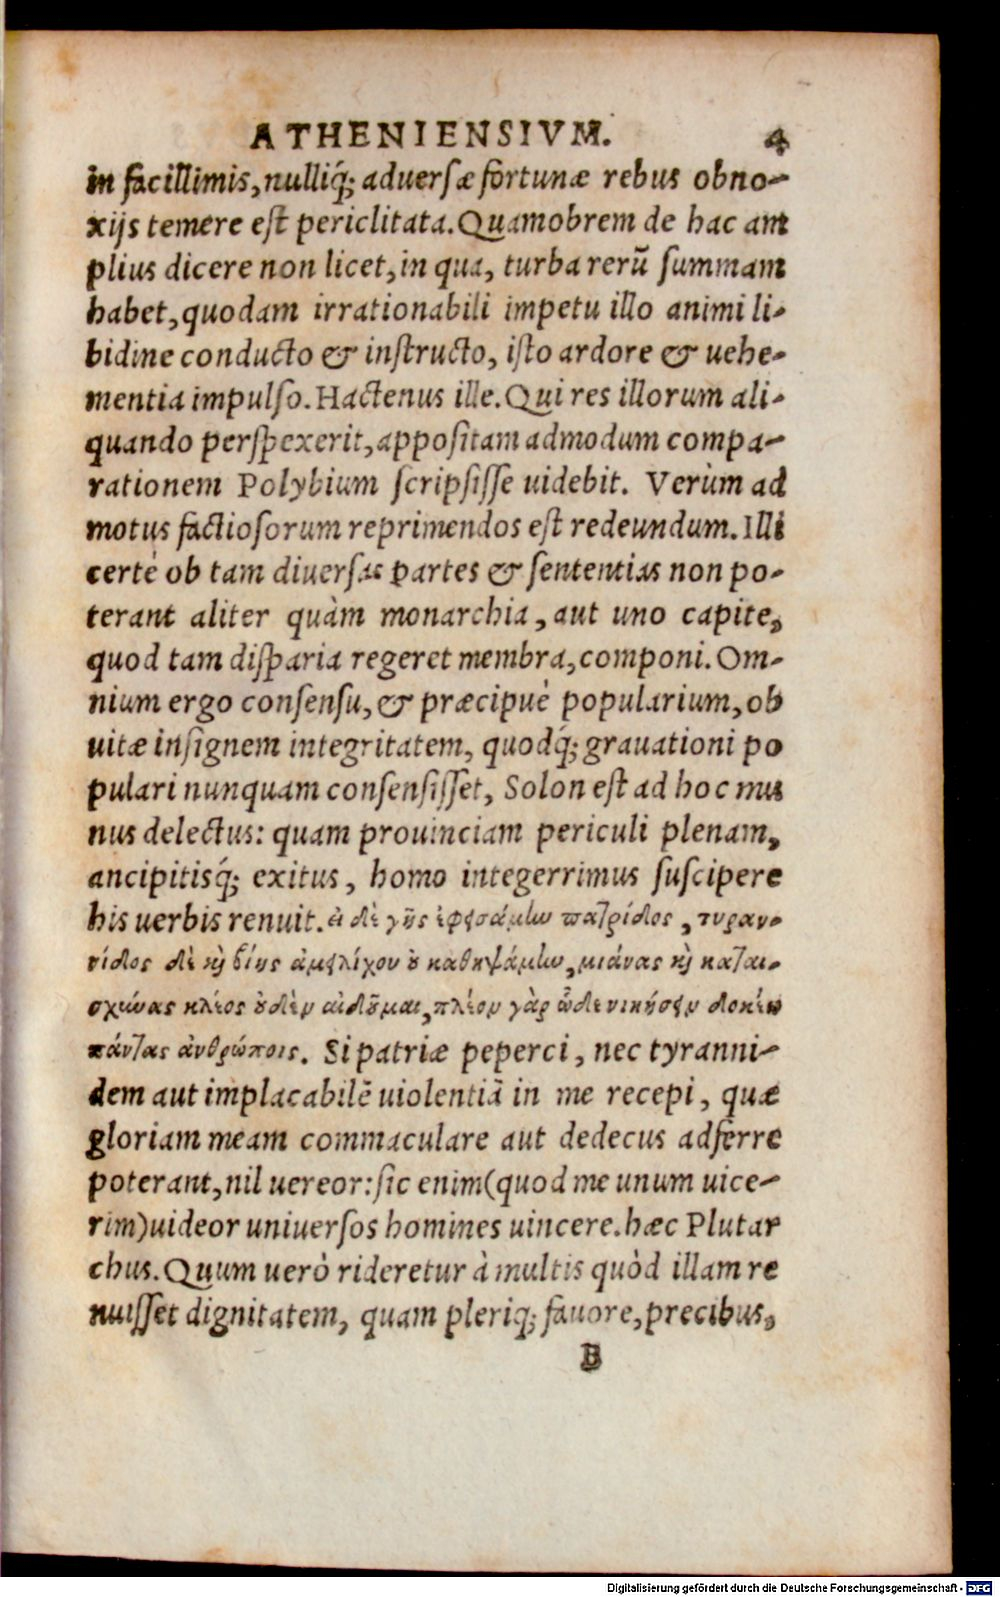 ATHENIENSIVM. 4
in facillimis,nulliq́; aduersæ fortunæ rebus obno-
xijs temere est periclitata.Quamobrem de hac am
plius dicere non licet,in qua, turba rerũ summam
habet,quodam irrationabili impetu illo animi li-
bidine conducto & instructo, isto ardore & uehe-
mentia impulso.Hactenus ille.Qui res illorum ali-
quando perspexerit,appositam admodum compa-
rationem Polybium scripsisse uidebit. Verùm ad
motus factiosorum reprimendos est redeundum.Illi
certè ob tam diuersas partes & sententias non po-
terant aliter quàm monarchia, aut uno capite,
quod tam disparia regeret membra,componi.Om-
nium ergo consensu,& præcipuè popularium,ob
uitæ insignem integritatem, quodq́; grauationi po
pulari nunquam consensisset, Solon est ad hoc mu
nus delectus: quam prouinciam periculi plenam,
ancipitisq́; exitus, homo integerrimus suscipere
his uerbis renuit.εἰ δὲ γῆς ἐφεισάμην πατρίδος, τυραν-
νίδος δὲ καὶ βίης ἀμειλίχου οὐ καθηψάμην,μιάνας καὶ καται-
σχύνας κλέος οὐδὲν αἰδοῦμαι,πλέον γὰρ ὧδε νικήσειν δοκέω
πάντας ἀνθρώποις. Si patriæ peperci, nec tyranni-
dem aut implacabilẽ uiolentiã in me recepi, quæ
gloriam meam commaculare aut dedecus adferre
poterant,nil uereor:sic enim(quod me unum uice-
rim)uideor uniuersos homines uincere.hæc Plutar
chus.Quum uerò rideretur à multis quòd illam re
nuisset dignitatem, quam pleriq; fauore,precibus,
B
Digitalisierung gefördert durch die Deutsche Forschungsgemeinschaft - DFG